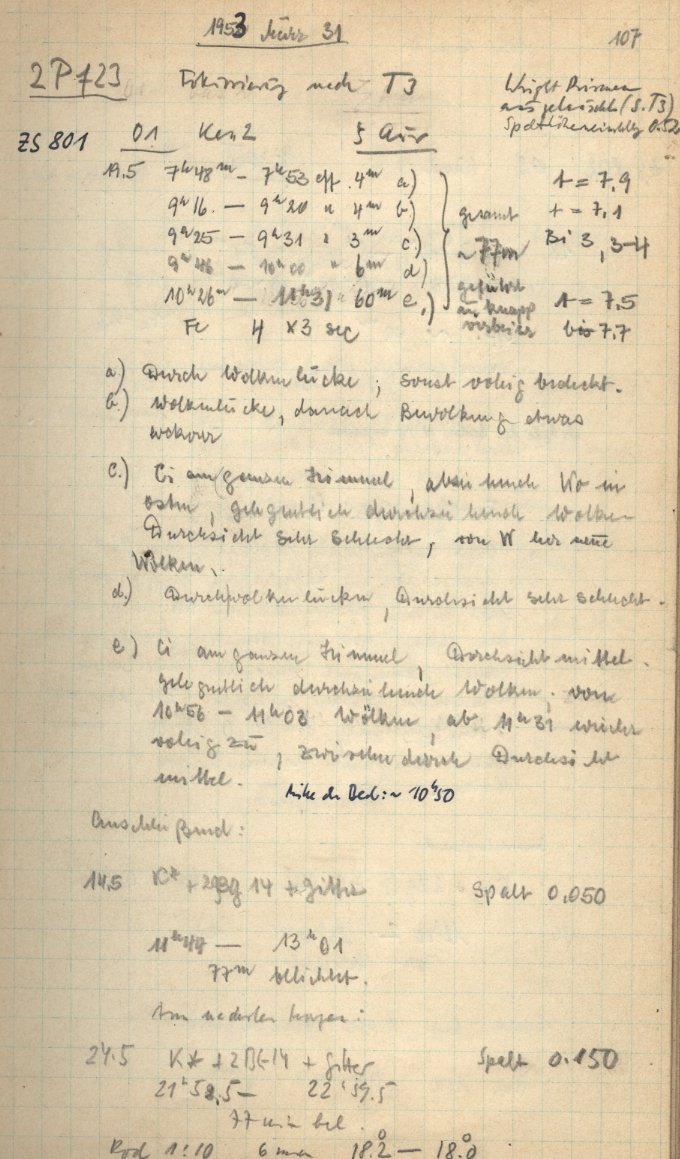 1953 März 31
107
2P123 Fokussierung nach T3
ZS 801 01 Ken2 ζ Aur
Spalthöhe
19.5 7h48m – 7h53 eff. 4m a)
9h16 – 9h20 " 4m b)
9h25 – 9h31 " 3m c)
9h46 – 10h00 " 6m d)
10h26m – 11h31 " 60m e.)
Fe 4 x 3 sec
gesamt
~ 77m
geführt
an knapp
vorbei
t = 7,9
t = 7,1
Bi 3, 3-4
t = 7,5
bis 7,7
a) Durch Wolkenlücke, sonst völlig bedeckt.
b.) Wolkenlücke, danach Bewölkung etwas
c.) Ci am ganzen Himmel, abziehende Wo in
Osten, gelegentlich durchziehende Wolken
Durchsicht sehr schlecht, von W her neue
Wolken.
d.) Durch Wolkenlücken, Durchsicht sehr schlecht.
e) Ci am ganzen Himmel, Durchsicht mittel.
gelegentlich durchziehende Wolken. von
10h56 – 11h03 Wolken, ab 11h31 wieder
völlig zu, zwischendurch Durchsicht
mittel.
Mitte der Bel: ~ 10h50
Anschließend:
14.5 K* + 2BG 14 + Gitter Spalt 0.050
11h44 – 13h01
77m belichtet.
Am nächsten Morgen:
24.5 K* + 2BG14 + Gitter Spalt 0.150
21h58.5 – 22h59.5
77 min bel.
Rod 1:10 6 min 18.2° – 18.0°